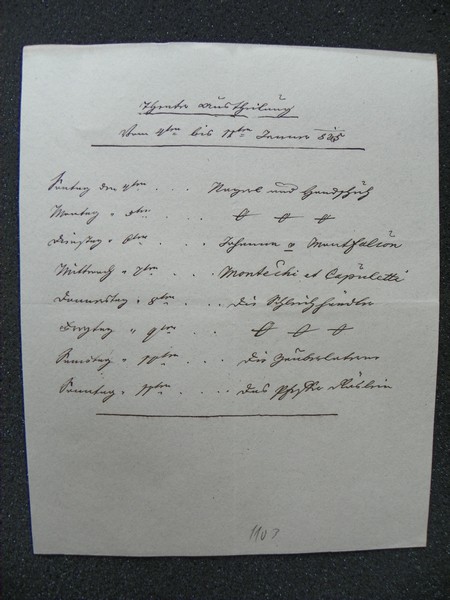 Theater Austheilung
Vom 4ten bis 11ten Januar 835
Sontag den 4ten . . . Nagel und Handschuh
Montag " 5ten . . .
Dienstag " 6ten . . . Johanna v Montfalcon
Mittwoch " 7ten . . . Montechi et Capuletti
Donnerstag " 8ten . . . Die Schleichhändler
Freytag " 9ten . . .
Samstag " 10ten . . . Die Zauberlaterne
Sonntag " 11ten . . . Das Käthlein
1103